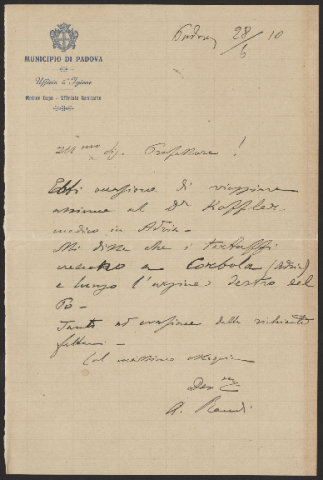 MUNICIPIO DI PADOVA
Ufficio d'Igiene
Medico Capo - Ufficiale Sanitario
Padova, 28/5 10
Ill.mo Sig. Professore!
Ebbi occasione di viaggiare
assieme al Dr
medico in Adria.
Mi disse che i tartuffi
crescono a Corbola (Adria)
e lungo l'argine destro del
Po.
Tanto ad evasione della richiesta
fattami.
Col massimo ossequio
Dev.
A. Randi